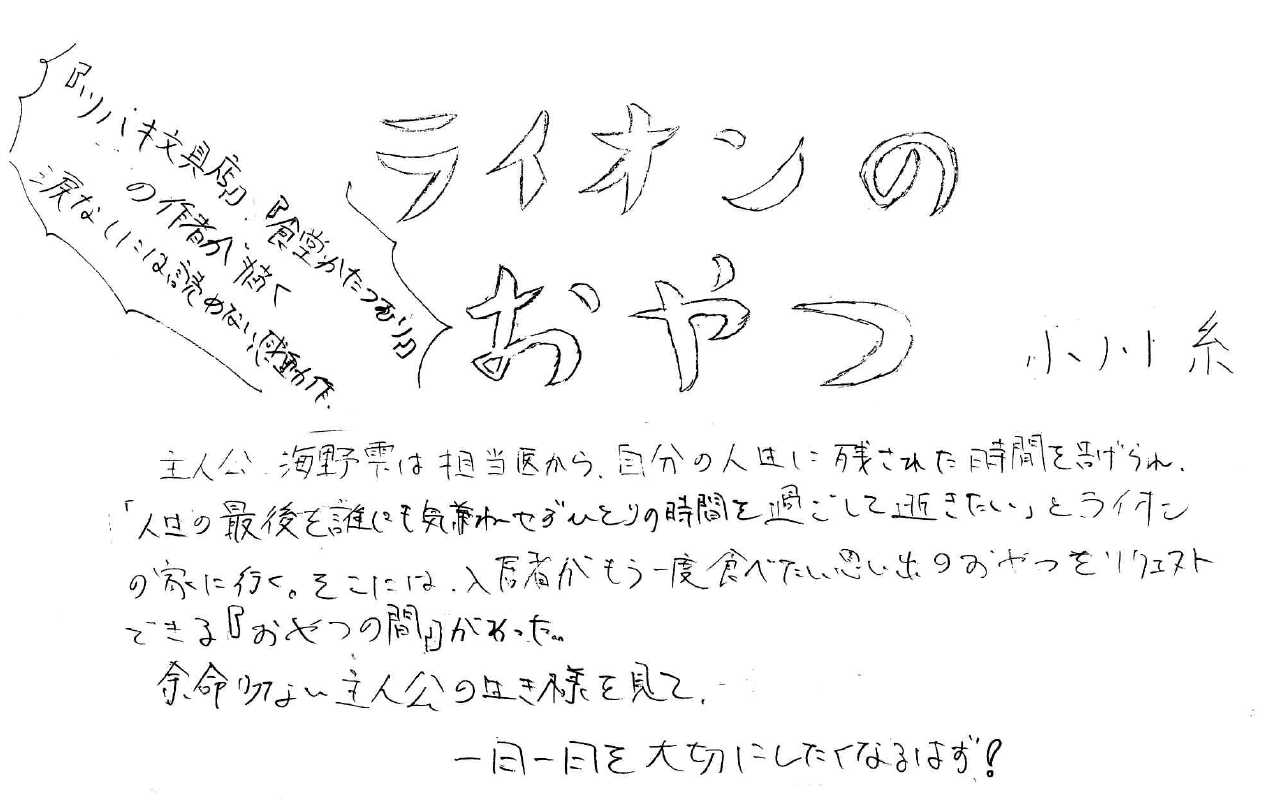 『ツバキ文具店』、『食堂かたつむり』
の作者が描く
涙なしには読めない感動作.
ライオンの
おやつ
小川糸
主人公 海野雫は担当医から、自分の人生に残された時間を告げられ、
「人生の最後を誰にも気兼ねせずひとりの時間を過ごして逝きたい」とライオン
の家に行く。そこには、入居者がもう一度食べたい思い出のおやつをリクエスト
できる『おやつの間』があった。
余命少ない主人公の生き様を見て、
一日一日を大切にしたくなるはず!